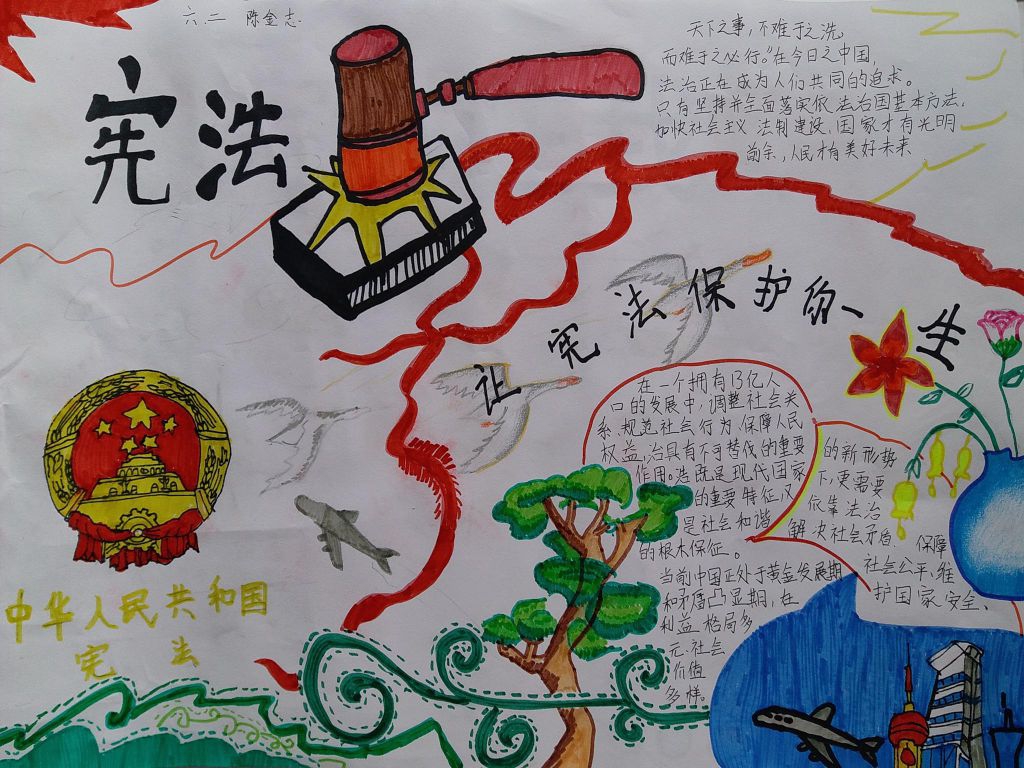 六.二 陈金志
宪法
天下之事,不难于立法
而难于之必行。"在今日之中国,
法治正在成为人们共同的追求。
只有坚持并全面落实依法治国基本方法,
加快社会主义法制建设,国家才有光明
前余,人民才有美好未来
让宪法保护你一生
在一个拥有13亿人
口的发展中,调整社会关
系.规范社会行为.保障人民
权益,治具有不可替代的重要
作用。法既是现代国家
的重要特征,又
是社会和谐
的根木保证。
当前中国正处于黄金发展期
和矛盾凸显期,在
利益格局多
元.社会
价值
多样。
的新形势
下,更需要
依靠法治
解决社会矛盾.保障
社会公平,维
护国家安全、
中华人民共和国
宪法